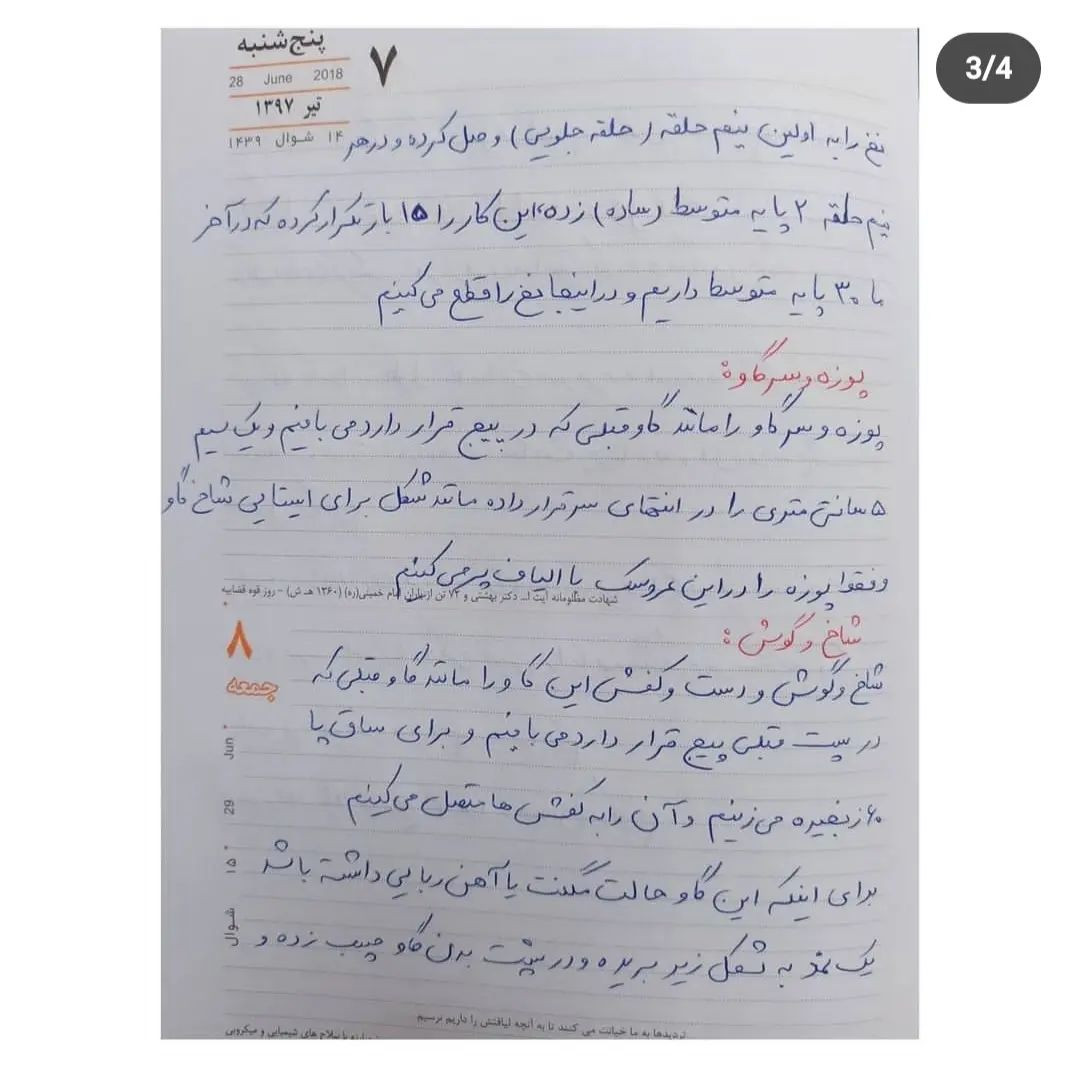 3/4
پنج‌شنبه
۷
28 June 2018
تیر ۱۳۹۷
۱۴ شوال ۱۴۳۹
نخ را به اولین نیم حلقه (حلقه جلویی) وصل کرده و در هر
نیم حلقه ۲ پایه متوسط (ساده) زده، این کار را ۱۵ بار تکرار کرده که در آخر
ما ۳۰ پایه متوسط داریم و در اینجا نخ را قطع می کنیم
پوزه و سر گاو:
پوزه و سر گاو را مانند گاو قبلی که در پیج قرار دارد می بافیم و یک سیم
۵ سانتی متری را در انتهای سر قرار داده مانند شکل برای ایستایی شاخ گاو
و فقط پوزه را در این عروسک با الیاف پر می کنیم
شهادت مظلومانه آیت ا... دکتر بهشتی و ۷۲ تن از یاران امام خمینی(ره) (۱۳۶۰ هـ ش) - روز قوه قضاییه
۸
جمعه
Jun 29
۱۵ شوال
شاخ و گوش:
شاخ و گوش و دست و کفش این گاو را مانند گاو قبلی که
در پست قبلی پیج قرار دارد می بافیم و برای ساق پا
۶۰ زنجیره می زنیم و آن را به کفش ها متصل می کنیم
برای اینکه این گاو حالت مگنت یا آهن ربایی داشته باشد
یک نمد به شکل زیر بریده و در پشت بدن گاو چسب زده و
تردیدها به ما خیانت می کنند تا به آنچه لیاقتش را داریم نرسیم
مبارزه با سلاح های شیمیایی و میکروبی